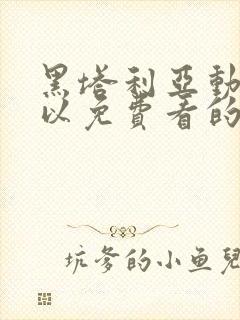 黑塔利亞動
以免費看的
坑爹的小鱼兒